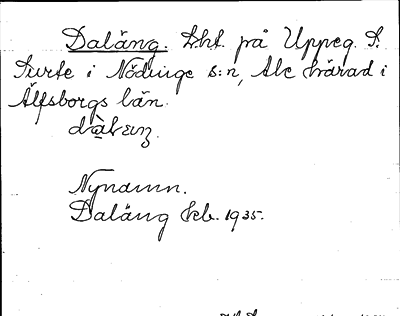 Daläng. Lht. på Uppeg. S.
Surte i Nödinge s:n, Ale härad i
Älfsborgs län.

Nynamn.
Daläng Jeb. 1935.